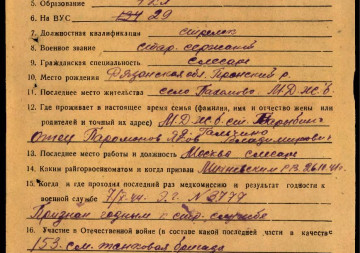 5. Образование 4 кл
6. На ВУС 134 29
7. Должностная квалификация стрелок
8. Военное звание стар. сержант
9. Гражданская специальность слесарь
10. Место рождения Рязанская обл. Пронский р.
11. Последнее место жительства село Пахомово М.Д.Ж.Б.
12. Где проживает в настоящее время семья (фамилия, имя и отчество жены или
родителей и точный их адрес) М.Д.Ж.Б. ст.
Отец Парамонов Владимирович
14. Последнее место работы и должность Москва слесарь
14. Каким райгорвоенкоматом и когда призван 26.11.40 г.
15. Когда и где проходил последний раз медкомиссию и результат годности к
военной службе 7/X-44 Э.Г. №3777
Признан годным к стр. службе
16. Участие в Отечественной войне (в составе какой последней части в качестве
153 танковая бригада